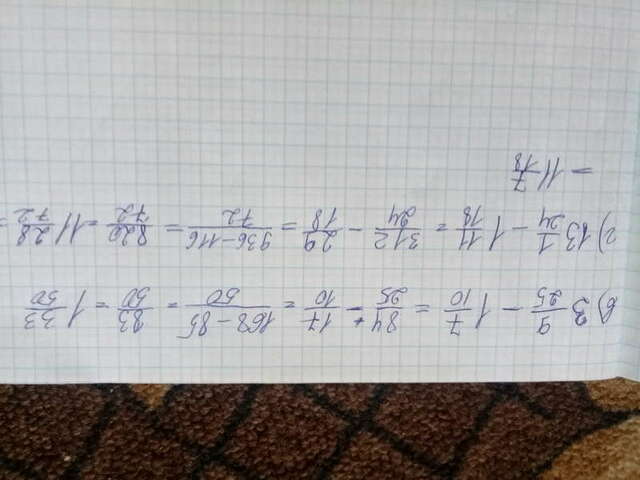 в) 3 9/25 - 1 7/10 = 84/25 - 17/10 = 168-85/50 = 83/50 = 1 33/50
г) 13 1/24 - 1 11/18 = 312/24 - 29/18 = 936-116/72 = 820/72 = 11 28/72 =
= 11 7/18